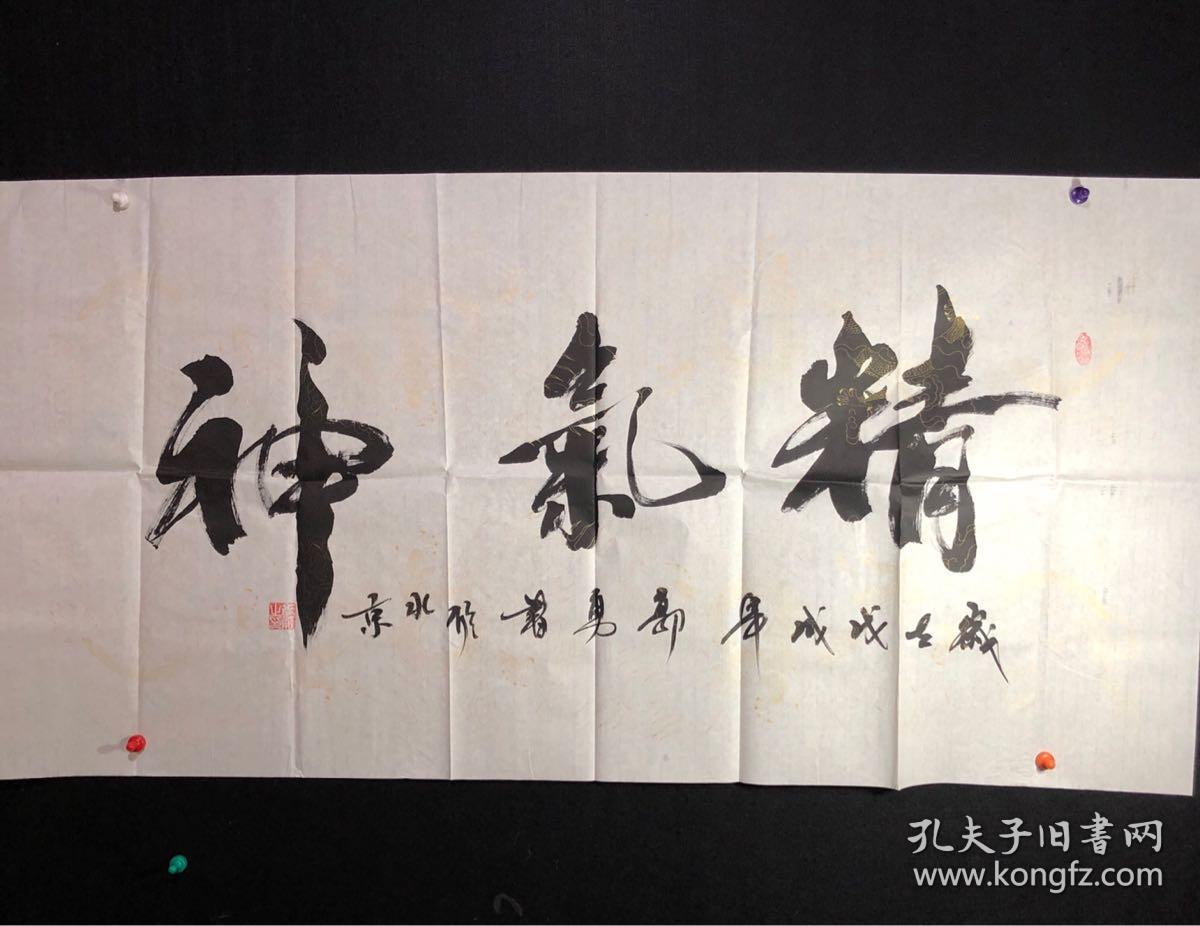 精氣神
歲在戊戌年 勇書於北京
孔夫子旧書网
www.kongfz.com